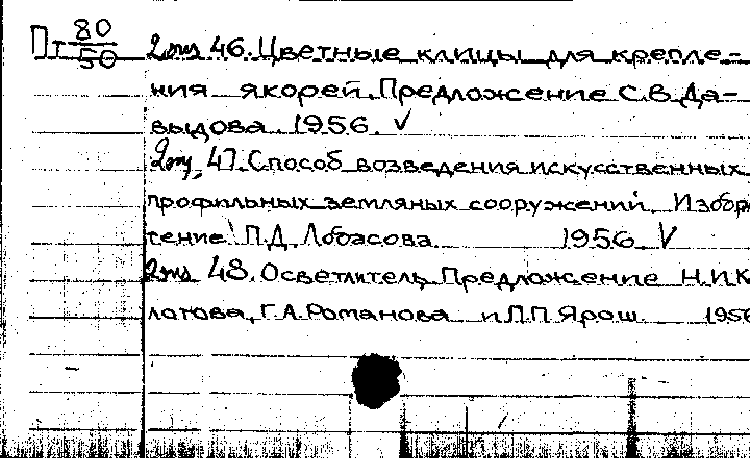 Пт 80/50 2 экз 46. Цветные клицы для крепле-
ния якорей. Предложение С.В. Да-
выдова. 1956. V
2 экз. 47. Способ возведения искусственных
профильных земляных сооружений. Изобре
тение П.Д. Лобасова. 1956 V
2 экз 48. Осветлитель. Предложение Н.И.К
латова, Г.А. Романова и П.П. Ярош. 1956